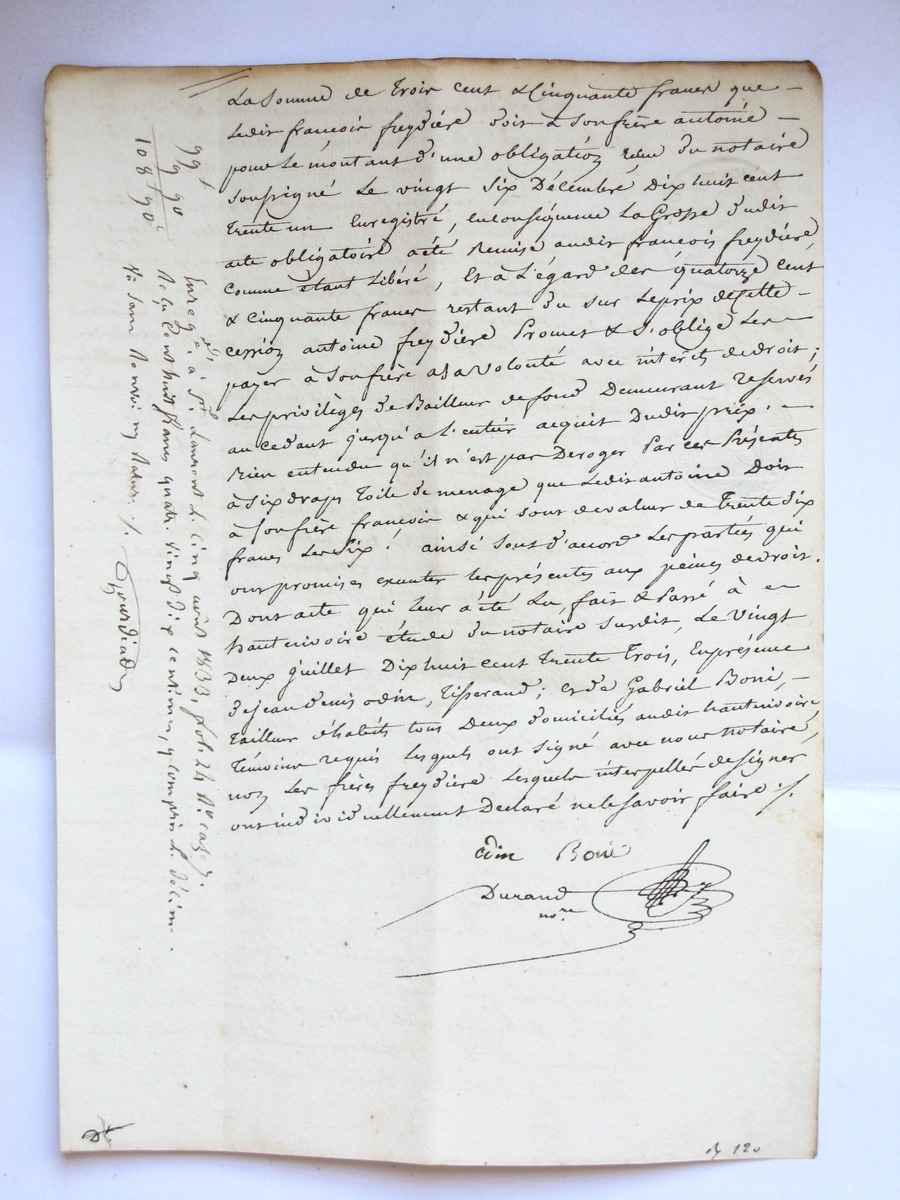 La Somme de Trois cent & Cinquante francs que
Ledit francois freydière doit à Son frère antoine
pour Le montant d'une obligation reçu du notaire
Soussigné Le vingt Six Décembre Dix huit cent
trente un Enregistré, en conséquence La Grosse dudit
acte obligatoire a été Remise audit francois freydière
Comme étant Libéré, Et à L'égard des quatorze cent
& cinquante francs restant du sur Le prix de cette
cession antoine freydière Promet & S'oblige Les
payer à Son frère a Sa volonté avec interets de droit;
Les privilèges de Bailleur de fond Demeurant reservés
au cedant jusqu'à L'entier acquit Dudit prix.
Rien entendu qu'il n'est pas Deroger Par ces Présentes
à Six draps toile de menage que Ledit antoine Doit
à Son frère francois & qui sont de valeur de trente Six
francs Les Six! ainsi Sont d'accord Les parties qui
ont promises executer les présentes aux peines de droit.
Dont acte qui leur a été Lu, fait & Passé à
hauterivoire étude du notaire Susdit, Le Vingt
Deux Juillet Dix huit cent trente Trois, En présence
de jean denis odin, tisserand; et de Gabriel Boni,
tailleur d'habits tous Deux domiciliés audit hauterivoire
témoins requis Lesquels ont Signé avec nous notaire,
non Les frères freydière Lesquels interpellés de signer
ont individuellement Declaré ne le Savoir faire ./.
Odin Boni
Durand
nore
99 f
9 90
108 f 90 c
Enregé à St Laurent le cinq août 1833, fol. 24 Ro case 7.
Reçu cent huit francs quatre vingt dix centimes, y compris le décime.
No Sans Renvoi ny Rature ./.
Dt.
120